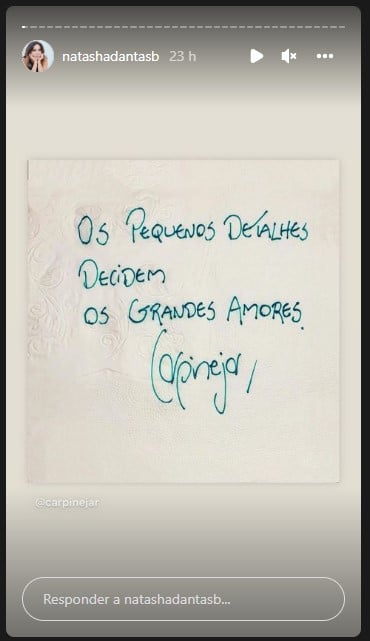 natashadantasb 23 h
Os Pequenos Detalhes
Decidem
os Grandes Amores.
Carpinejar
@carpinejar
Responder a natashadantasb...